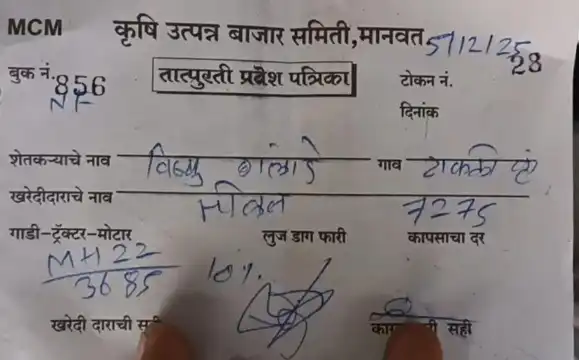 MCM कृषि उत्पन्न बाजार समिती,मानवत 5/12/25
बुक नं. 856 तात्पुरती प्रवेश पत्रिका टोकन नं. 28
NF दिनांक
शेतकऱ्याचे नाव विष्णु गाव टाकळी
खरेदीदाराचे नाव 7275
गाडी-ट्रॅक्टर-मोटार लुज डाग फारी कापसाचा दर
MH 22 10%
3685
खरेदी दाराची सही सही